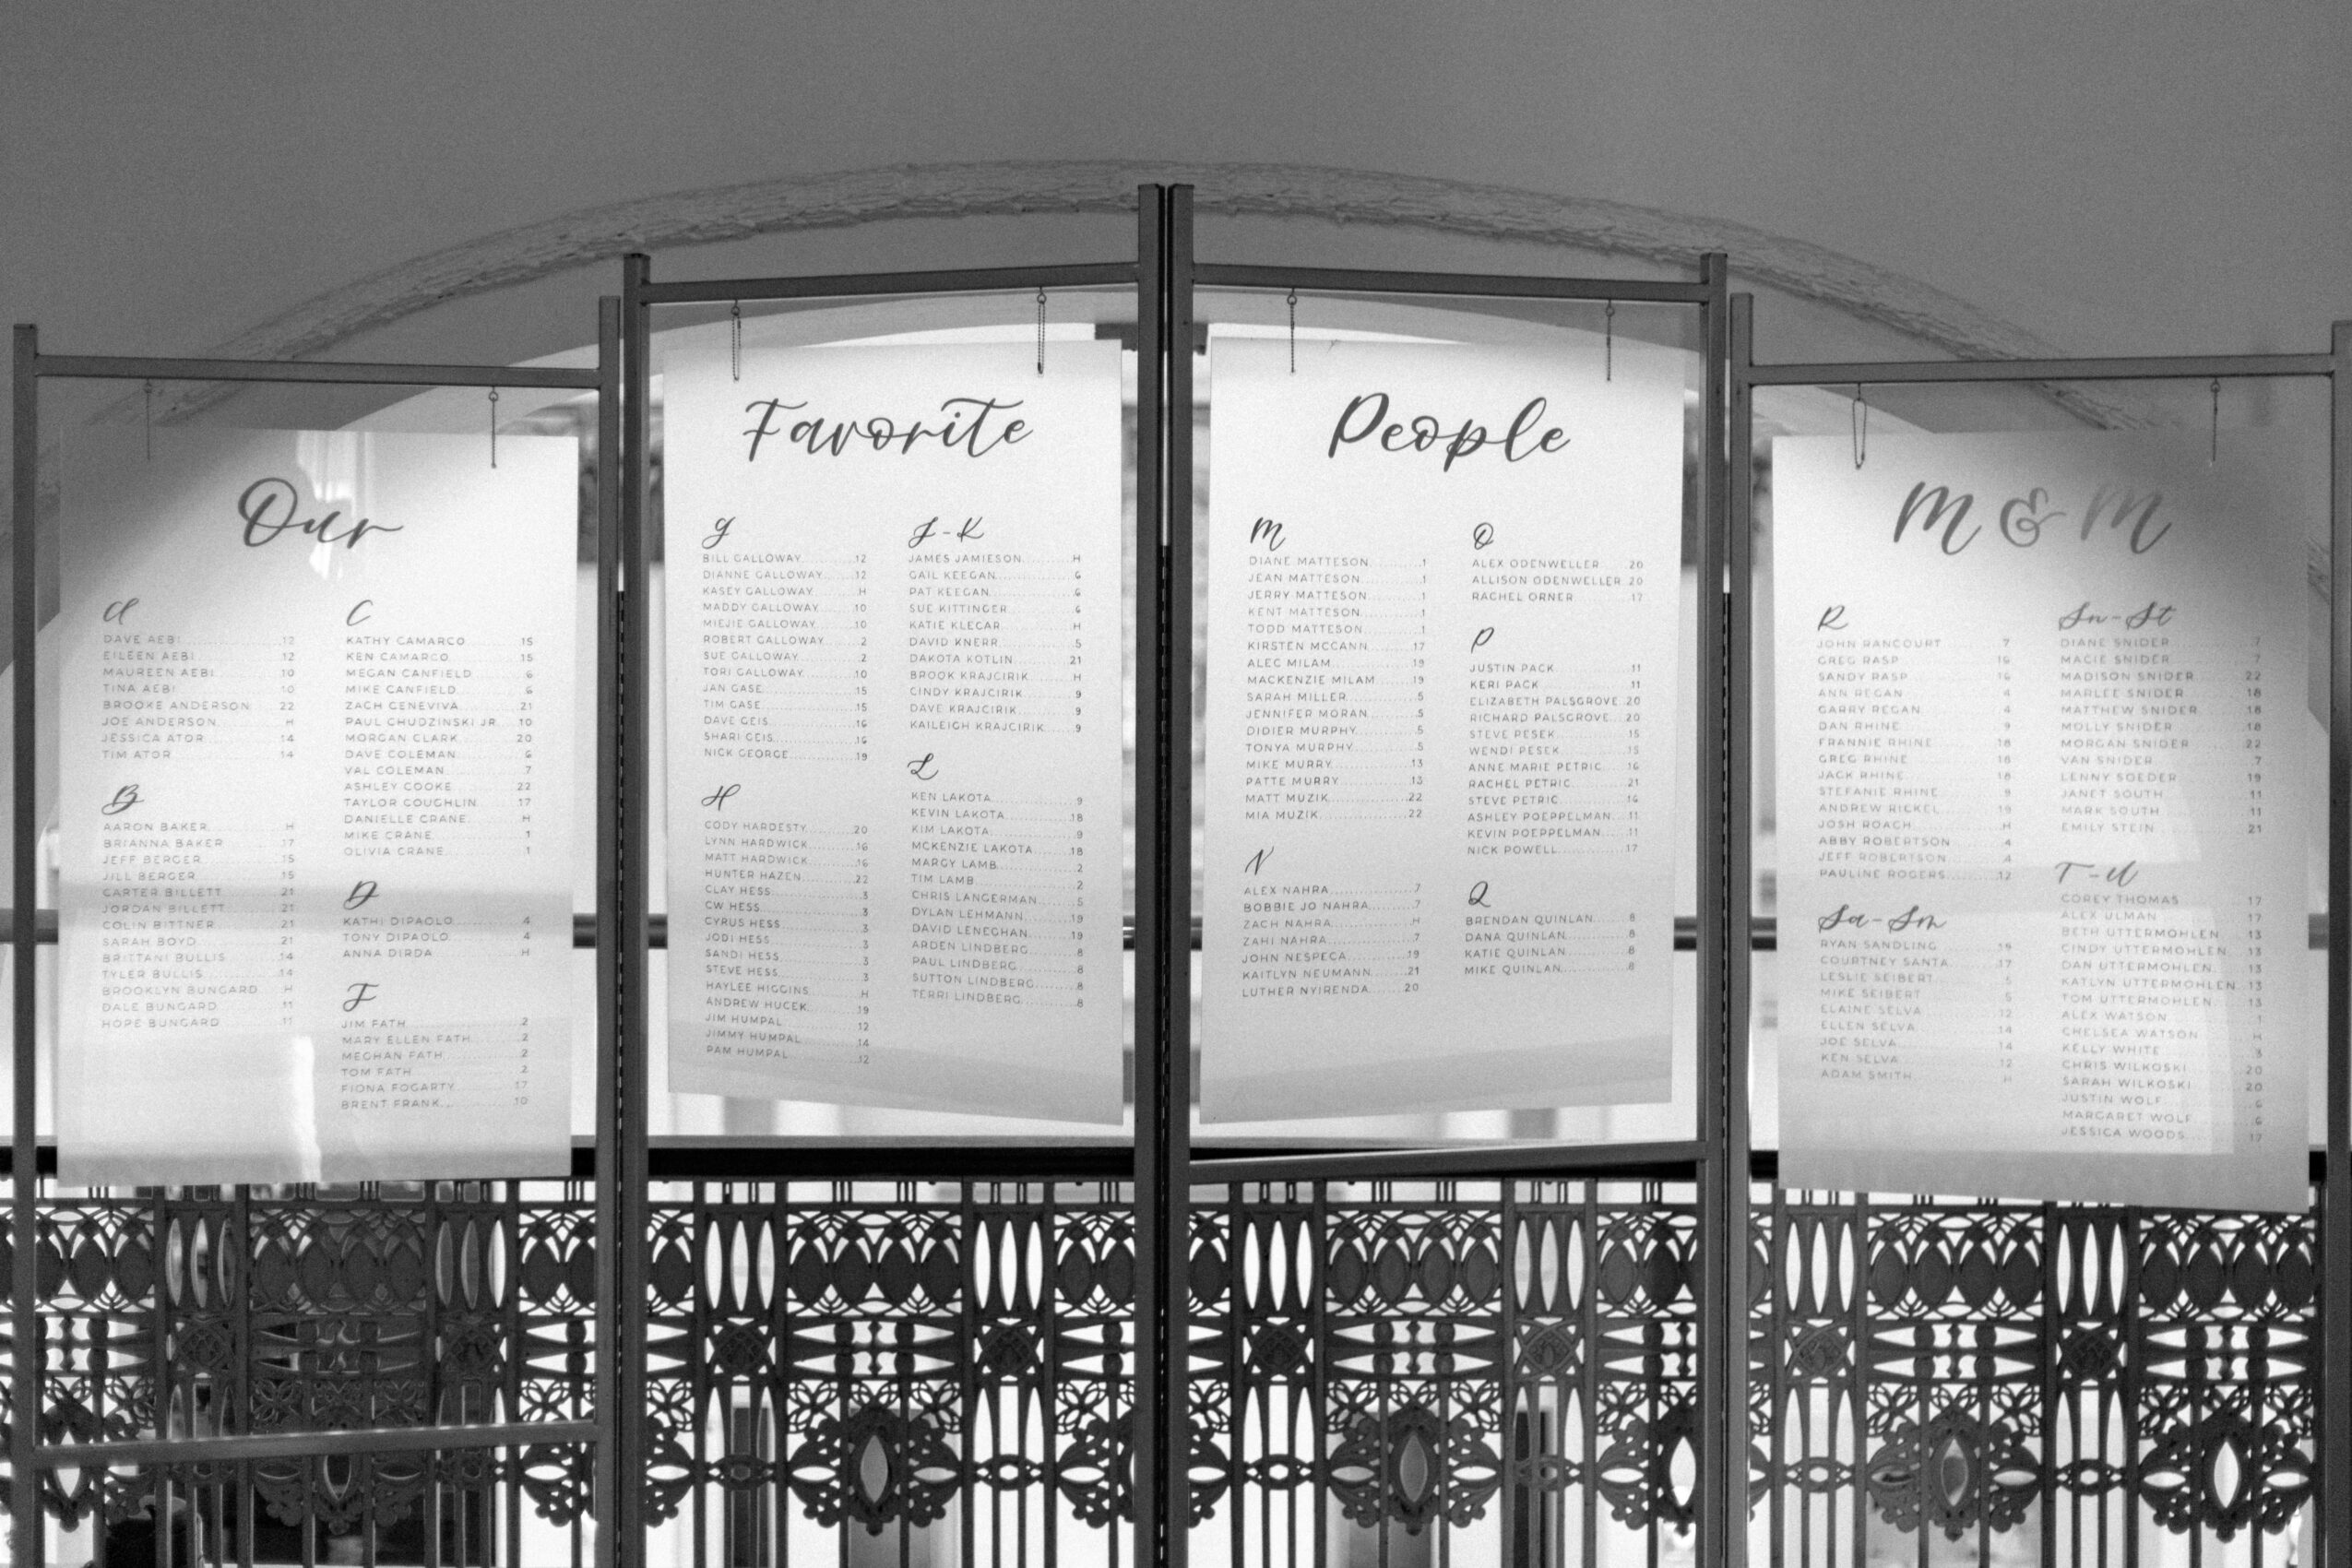 Our
A
DAVE AEBI 12
EILEEN AEBI 12
MAUREEN AEBI 10
TINA AEBI 10
BROOKE ANDERSON 22
JOE ANDERSON H
JESSICA ATOR 14
TIM ATOR 14
B
AARON BAKER H
BRIANNA BAKER 17
JEFF BERGER 15
JILL BERGER 15
CARTER BILLETT 21
JORDAN BILLETT 21
COLIN BITTNER 21
SARAH BOYD 21
BRITTANI BULLIS 14
TYLER BULLIS 14
BROOKLYN BUNGARD H
DALE BUNGARD 11
HOPE BUNGARD 11
C
KATHY CAMARCO 15
KEN CAMARCO 15
MEGAN CANFIELD 6
MIKE CANFIELD 6
ZACH CENEVIVA 21
PAUL CHUDZINSKI JR. 10
MORGAN CLARK 20
DAVE COLEMAN 6
VAL COLEMAN 7
ASHLEY COOKE 22
TAYLOR COUGHLIN 17
DANIELLE CRANE H
MIKE CRANE 1
OLIVIA CRANE 1
D
KATHI DIPAOLO 4
TONY DIPAOLO 4
ANNA DIRDA H
F
JIM FATH 2
MARY ELLEN FATH 2
MEGHAN FATH 2
TOM FATH 2
FIONA FOGARTY 17
BRENT FRANK 10
Favorite
G
BILL GALLOWAY 12
DIANNE GALLOWAY 12
KASEY GALLOWAY H
MADDY GALLOWAY 10
MIEJIE GALLOWAY 10
ROBERT GALLOWAY 2
SUE GALLOWAY 2
TORI GALLOWAY 10
JAN GASE 15
TIM GASE 15
DAVE GEIS 16
SHARI GEIS 16
NICK GEORGE 19
H
CODY HARDESTY 20
LYNN HARDWICK 16
MATT HARDWICK 16
HUNTER HAZEN 22
CLAY HESS 3
CW HESS 3
CYRUS HESS 3
JODI HESS 3
SANDI HESS 3
STEVE HESS 3
HAYLEE HIGGINS H
ANDREW HUCEK 19
JIM HUMPAL 12
JIMMY HUMPAL 14
PAM HUMPAL 12
J-K
JAMES JAMIESON H
GAIL KEEGAN 6
PAT KEEGAN 6
SUE KITTINGER 6
KATIE KLEGAR H
DAVID KNERR 5
DAKOTA KOTLIN 21
BROOK KRAJCIRIK H
CINDY KRAJCIRIK 9
DAVE KRAJCIRIK 9
KAILEIGH KRAJCIRIK 9
L
KEN LAKOTA 9
KEVIN LAKOTA 18
KIM LAKOTA 9
MCKENZIE LAKOTA 18
MARGY LAMB 2
TIM LAMB 2
CHRIS LANGERMAN 5
DYLAN LEHMANN 19
DAVID LENEGHAN 19
ARDEN LINDBERG 8
PAUL LINDBERG 8
SUTTON LINDBERG 8
TERRI LINDBERG 8
People
M
DIANE MATTESON 1
JEAN MATTESON 1
JERRY MATTESON 1
KENT MATTESON 1
TODD MATTESON 1
KIRSTEN MCCANN 17
ALEC MILAM 19
MACKENZIE MILAM 19
SARAH MILLER 5
JENNIFER MORAN 5
DIDIER MURPHY 5
TONYA MURPHY 5
MIKE MURRY 13
PATTE MURRY 13
MATT MUZIK 22
MIA MUZIK 22
N
ALEX NAHRA 7
BOBBIE JO NAHRA 7
ZACH NAHRA H
ZAHI NAHRA 7
JOHN NESPECA 19
KAITLYN NEUMANN 21
LUTHER NYIRENDA 20
O
ALEX ODENWELLER 20
ALLISON ODENWELLER 20
RACHEL ORNER 17
P
JUSTIN PACK 11
KERI PACK 11
ELIZABETH PALSGROVE 20
RICHARD PALSGROVE 20
STEVE PESEK 15
WENDI PESEK 15
ANNE MARIE PETRIC 16
RACHEL PETRIC 21
STEVE PETRIC 16
ASHLEY POEPPELMAN 11
KEVIN POEPPELMAN 11
NICK POWELL 17
Q
BRENDAN QUINLAN 8
DANA QUINLAN 8
KATIE QUINLAN 8
MIKE QUINLAN 8
M & M
R
JOHN RANCOURT 7
GREG RASP 16
SANDY RASP 16
ANN REGAN 4
GARRY REGAN 4
DAN RHINE 9
FRANNIE RHINE 18
GREG RHINE 18
JACK RHINE 18
STEFANIE RHINE 9
ANDREW RICKEL 19
JOSH ROACH H
ABBY ROBERTSON 4
JEFF ROBERTSON 4
PAULINE ROGERS 12
Sa-Sm
RYAN SANDLING 19
COURTNEY SANTA 17
LESLIE SEIBERT 5
MIKE SEIBERT 5
ELAINE SELVA 12
ELLEN SELVA 14
JOE SELVA 14
KEN SELVA 12
ADAM SMITH H
Sn-St
DIANE SNIDER 7
MACIE SNIDER 7
MADISON SNIDER 22
MARLEE SNIDER 18
MATTHEW SNIDER 18
MOLLY SNIDER 18
MORGAN SNIDER 22
VAN SNIDER 7
LENNY SOEDER 19
JANET SOUTH 11
MARK SOUTH 11
EMILY STEIN 21
T-U
COREY THOMAS 17
ALEX ULMAN 17
BETH UTTERMOHLEN 13
CINDY UTTERMOHLEN 13
DAN UTTERMOHLEN 13
KATLYN UTTERMOHLEN 13
TOM UTTERMOHLEN 13
ALEX WATSON 1
CHELSEA WATSON H
KELLY WHITE 3
CHRIS WILKOSKI 20
SARAH WILKOSKI 20
JUSTIN WOLF 6
MARGARET WOLF 6
JESSICA WOODS 17